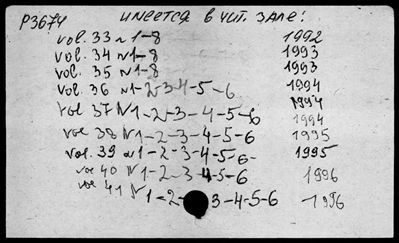 Р3674 имеется в чит. зале:
vol. 33 N 1-8 1992
vol. 34 N 1-8 1993
vol. 35 N 1-8 1993
vol. 36 N 1-2-3-4-5-6 1994
vol 37 N 1-2-3-4-5-6 1994
vol 38 N 1-2-3-4-5-6 1995
vol. 39 N 1-2-3-4-5-6- 1995
vol 40 N 1-2-3-4-5-6 1996
vol 41 N 1-2-3-4-5-6 1996